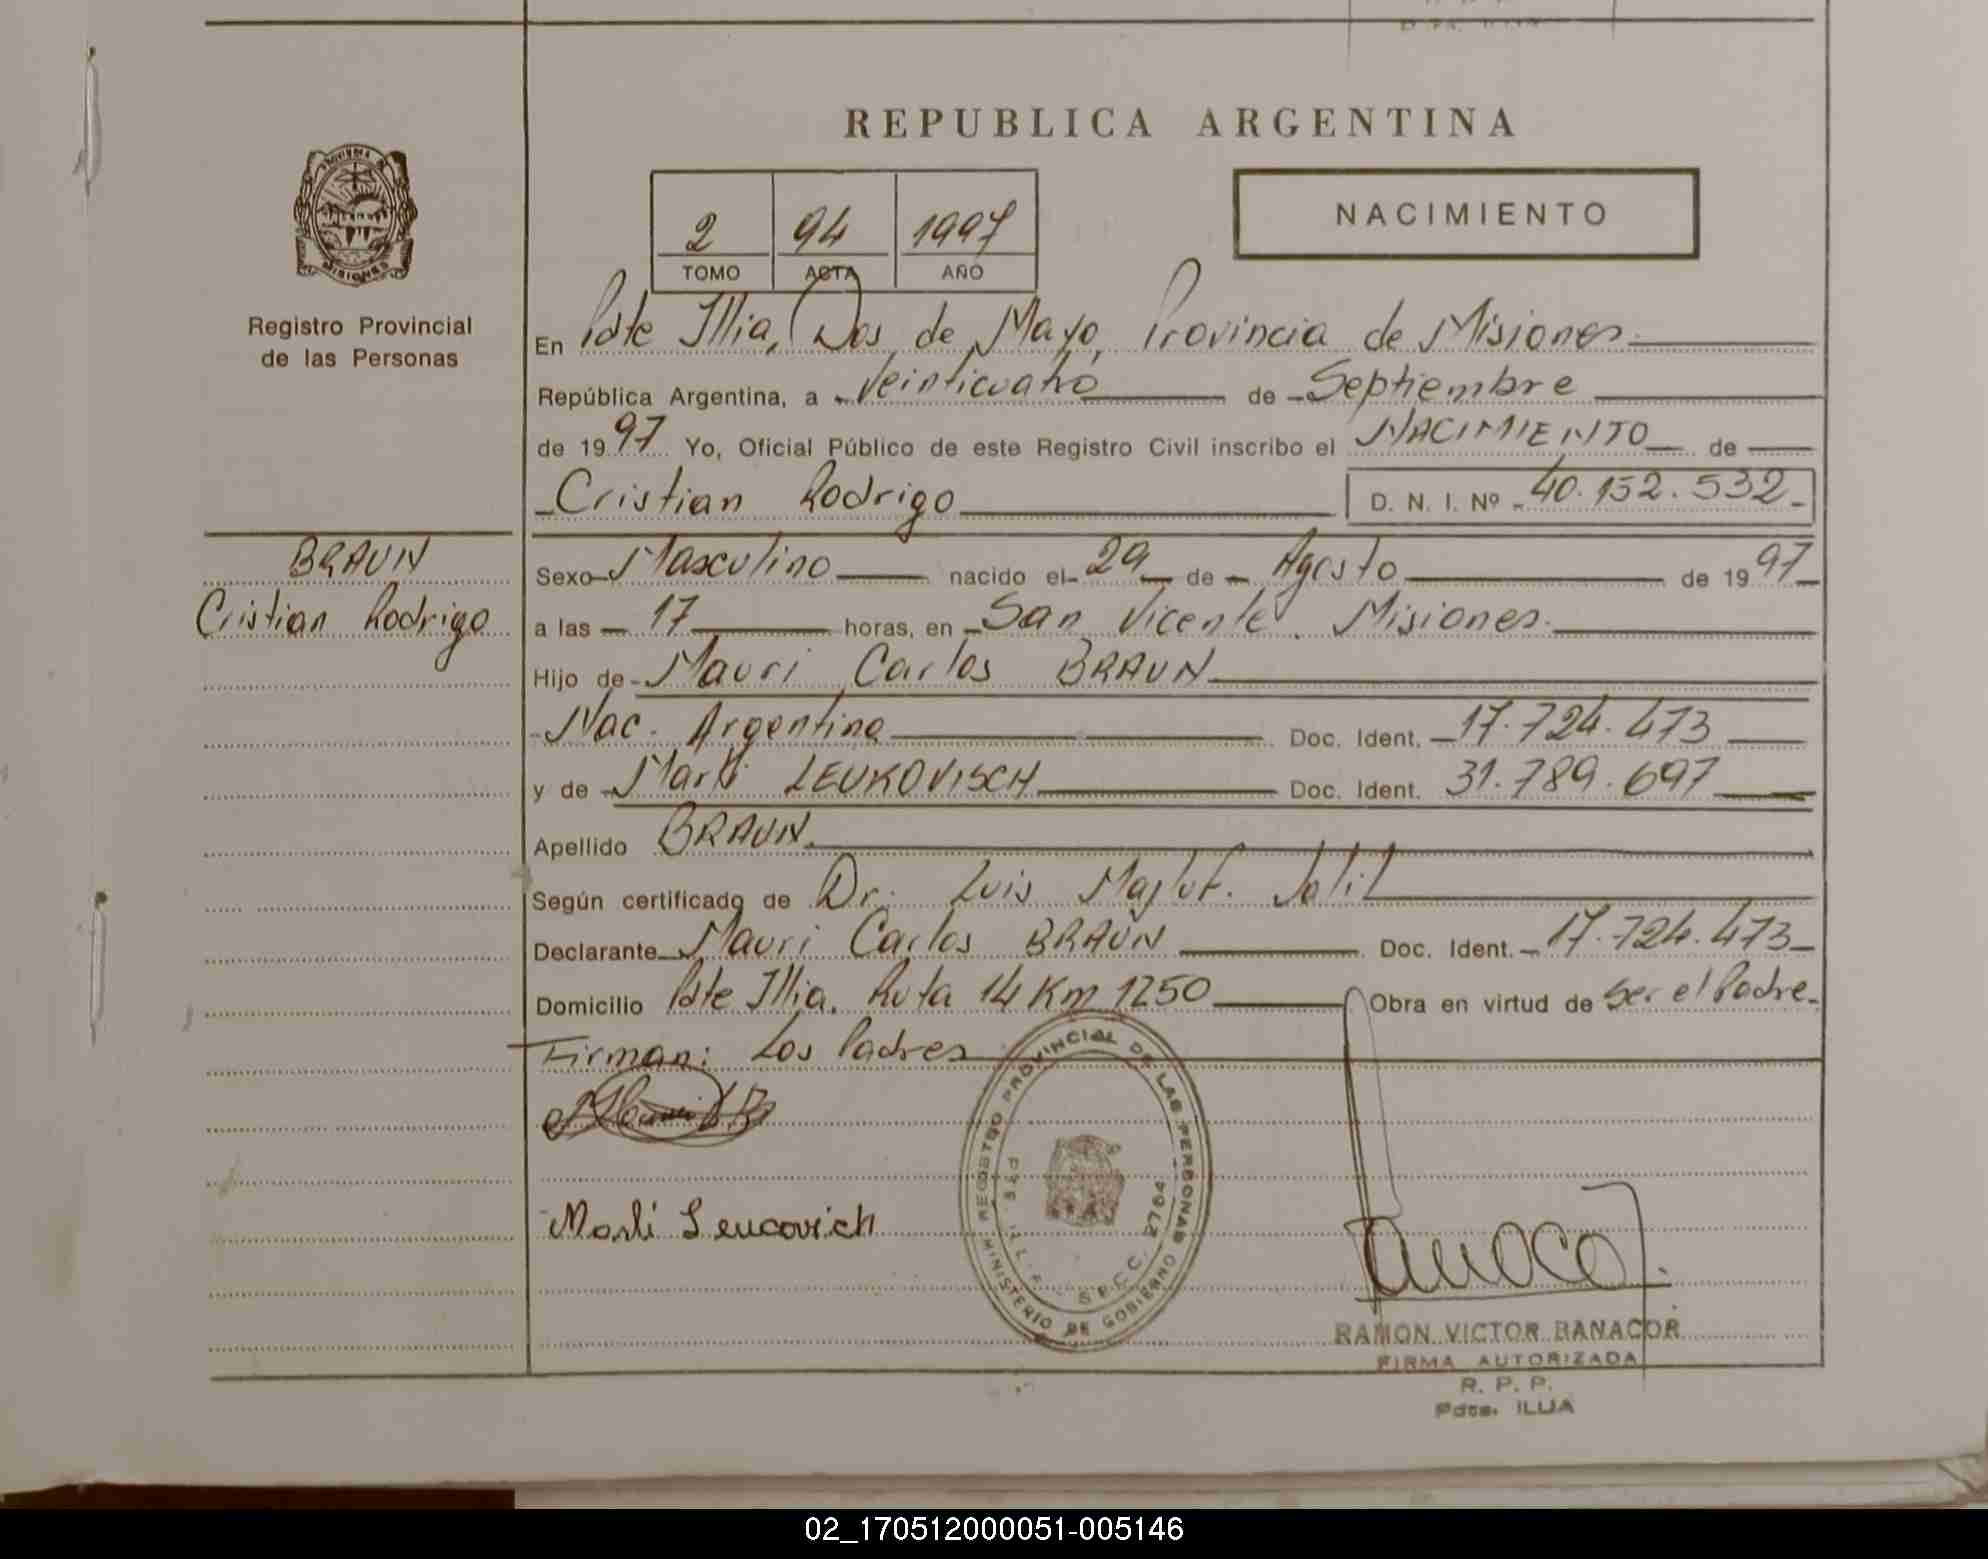 REPUBLICA ARGENTINA
PROVINCIA DE
MISIONES
Registro Provincial
de las Personas
2 94 1997
TOMO ACTA AÑO
NACIMIENTO
En Pdte Illia, Dos de Mayo, Provincia de Misiones.
República Argentina, a Veinticuatro de Septiembre
de 1997 Yo, Oficial Público de este Registro Civil inscribo el NACIMIENTO de
Cristian Rodrigo D. N. I. Nº 40.152.532
BRAUN
Cristian Rodrigo
Sexo Masculino nacido el 29 de Agosto de 1997
a las 17 horas, en San Vicente. Misiones.
Hijo de Mauri Carlos BRAUN
Nac. Argentina Doc. Ident. 17.724.473
y de Marli LEUKOVISCH Doc. Ident. 31.789.697
Apellido BRAUN
Según certificado de Dr. Luis Jalil
Declarante Mauri Carlos BRAUN Doc. Ident. 17.724.473
Domicilio Pdte Illia. Ruta 14 Km 1250 Obra en virtud de Ser el Padre.
Firman: Los Padres
Marli Leucovich
REGISTRO PROVINCIAL DE LAS PERSONAS
MINISTERIO DE GOBIERNO
S.P.C.C. 2764
RAMON VICTOR BANACOR
FIRMA AUTORIZADA
R. P. P.
Pdte. ILLIA
02_170512000051-005146